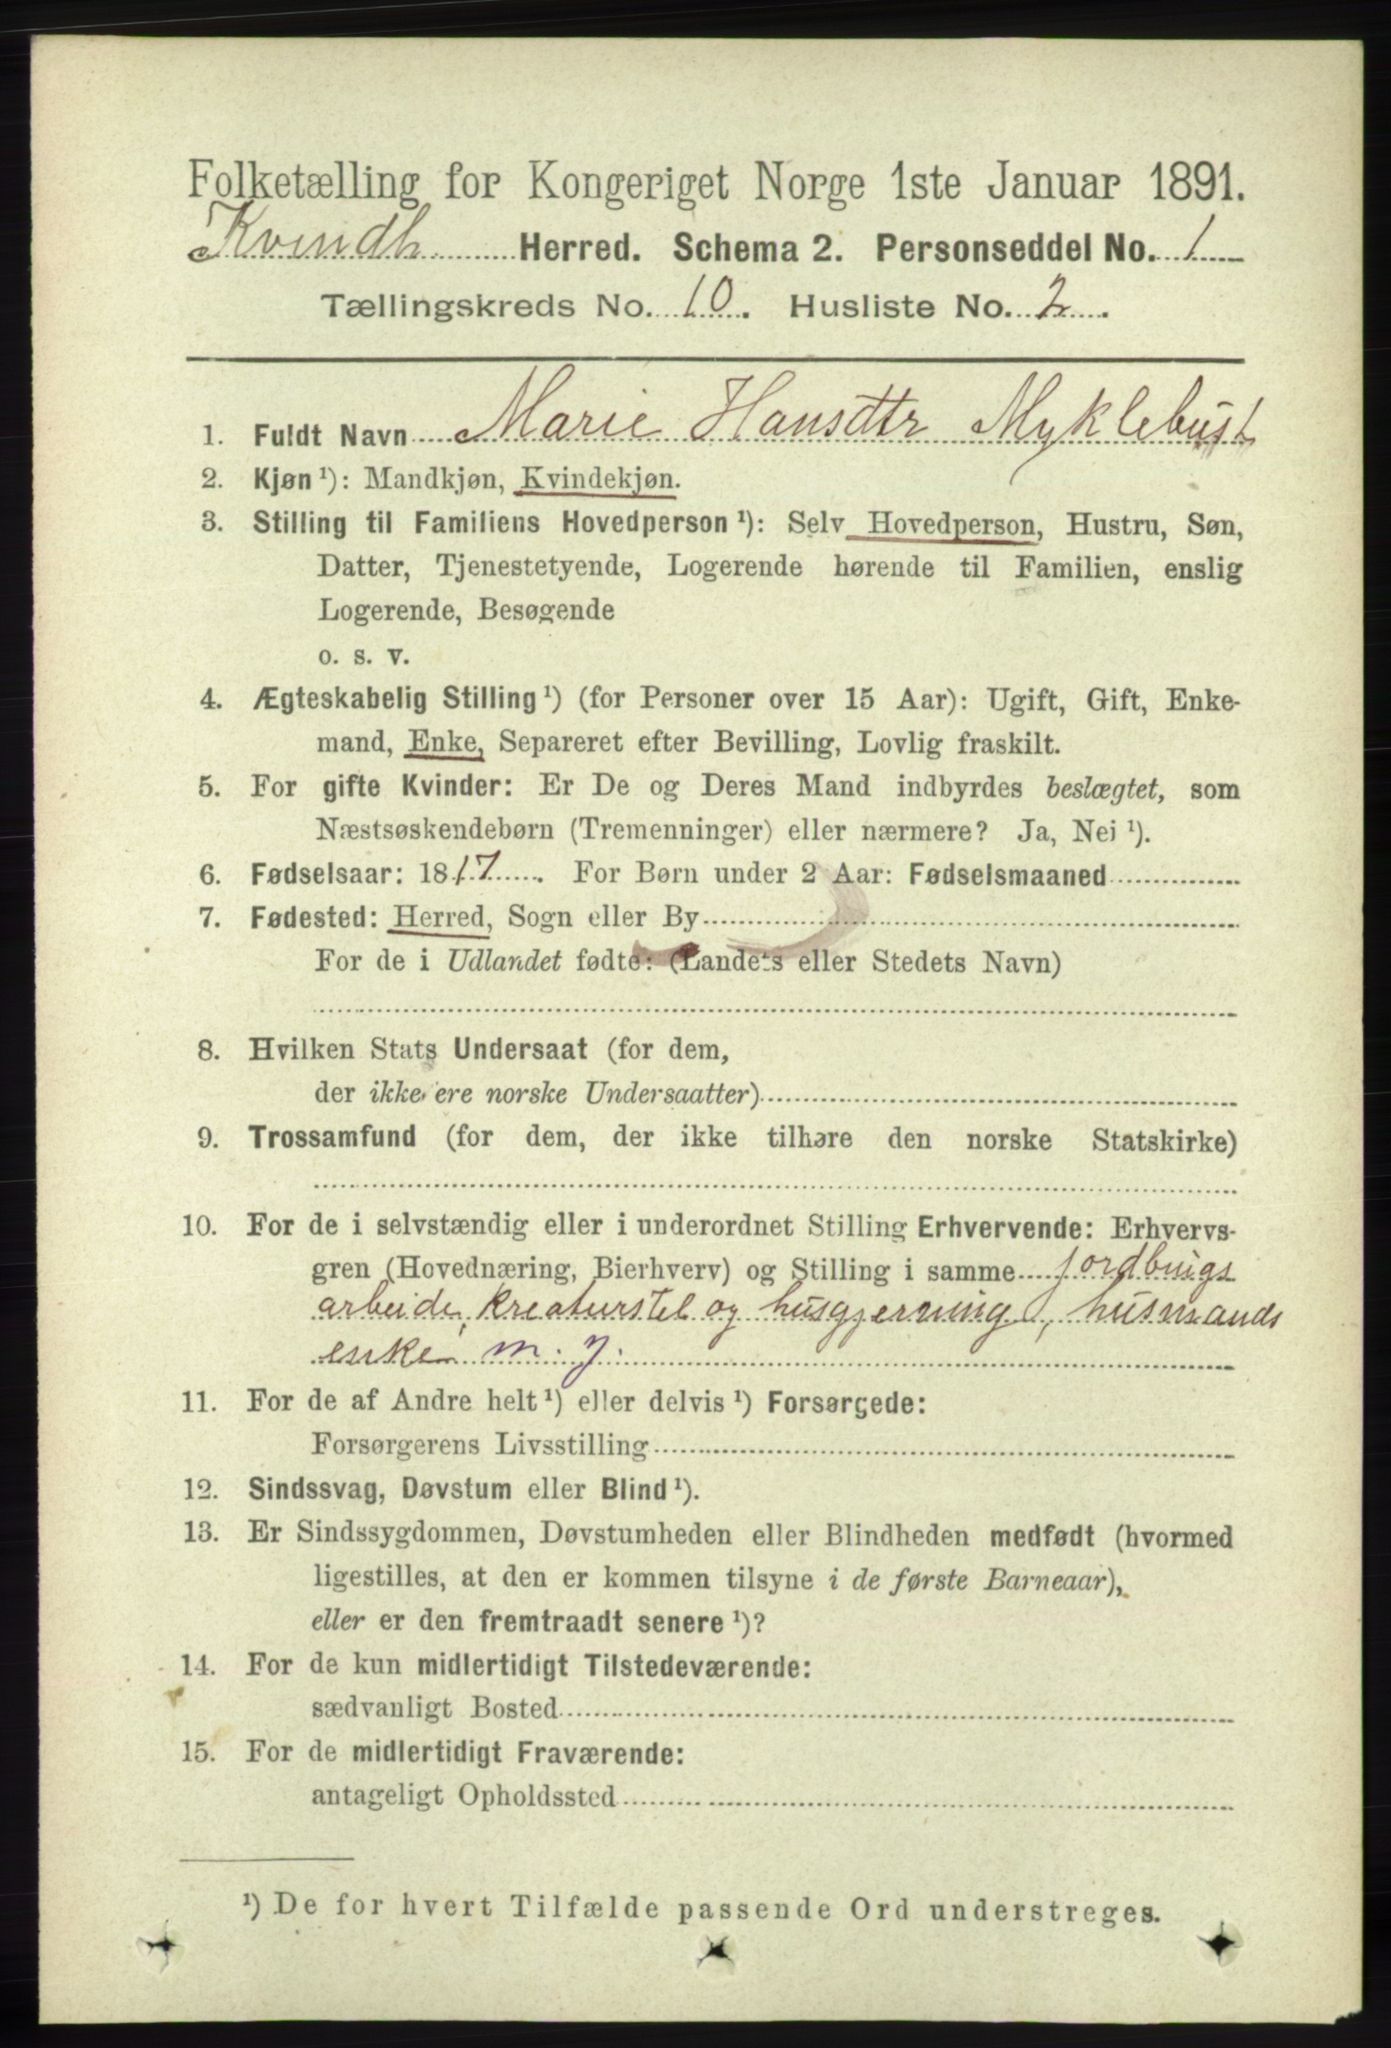 Folketælling for Kongeriget Norge 1ste Januar 1891.
Kvindh Herred. Schema 2. Personseddel No. 1
Tællingskreds No. 10. Husliste No. 2.
1. Fuldt Navn Marie Hansdtr Myklebust
2. Kjøn ¹): Mandkjøn, Kvindekjøn.
3. Stilling til Familiens Hovedperson ¹): Selv Hovedperson, Hustru, Søn,
Datter, Tjenestetyende, Logerende hørende til Familien, enslig
Logerende, Besøgende
o. s. v.
4. Ægteskabelig Stilling ¹) (for Personer over 15 Aar): Ugift, Gift, Enke-
mand, Enke, Separeret efter Bevilling, Lovlig fraskilt.
5. For gifte Kvinder: Er De og Deres Mand indbyrdes beslægtet, som
Næstsøskendebørn (Tremenninger) eller nærmere? Ja, Nei ¹).
6. Fødselsaar: 1817. For Børn under 2 Aar: Fødselsmaaned
7. Fødested: Herred, Sogn eller By
For de i Udlandet fødte: (Landets eller Stedets Navn)
8. Hvilken Stats Undersaat (for dem,
der ikke ere norske Undersaatter)
9. Trossamfund (for dem, der ikke tilhøre den norske Statskirke)
10. For de i selvstændig eller i underordnet Stilling Erhvervende: Erhvervs-
gren (Hovednæring, Bierhverv) og Stilling i samme jordbrugs
arbeide, kreaturstel og husgjerning, husmands
enke m. j.
11. For de af Andre helt ¹) eller delvis ¹) Forsørgede:
Forsørgerens Livsstilling
12. Sindssvag, Døvstum eller Blind ¹).
13. Er Sindssygdommen, Døvstumheden eller Blindheden medfødt (hvormed
ligestilles, at den er kommen tilsyne i de første Barneaar),
eller er den fremtraadt senere ¹)?
14. For de kun midlertidigt Tilstedeværende:
sædvanligt Bosted
15. For de midlertidigt Fraværende:
antageligt Opholdssted
¹) De for hvert Tilfælde passende Ord understreges.